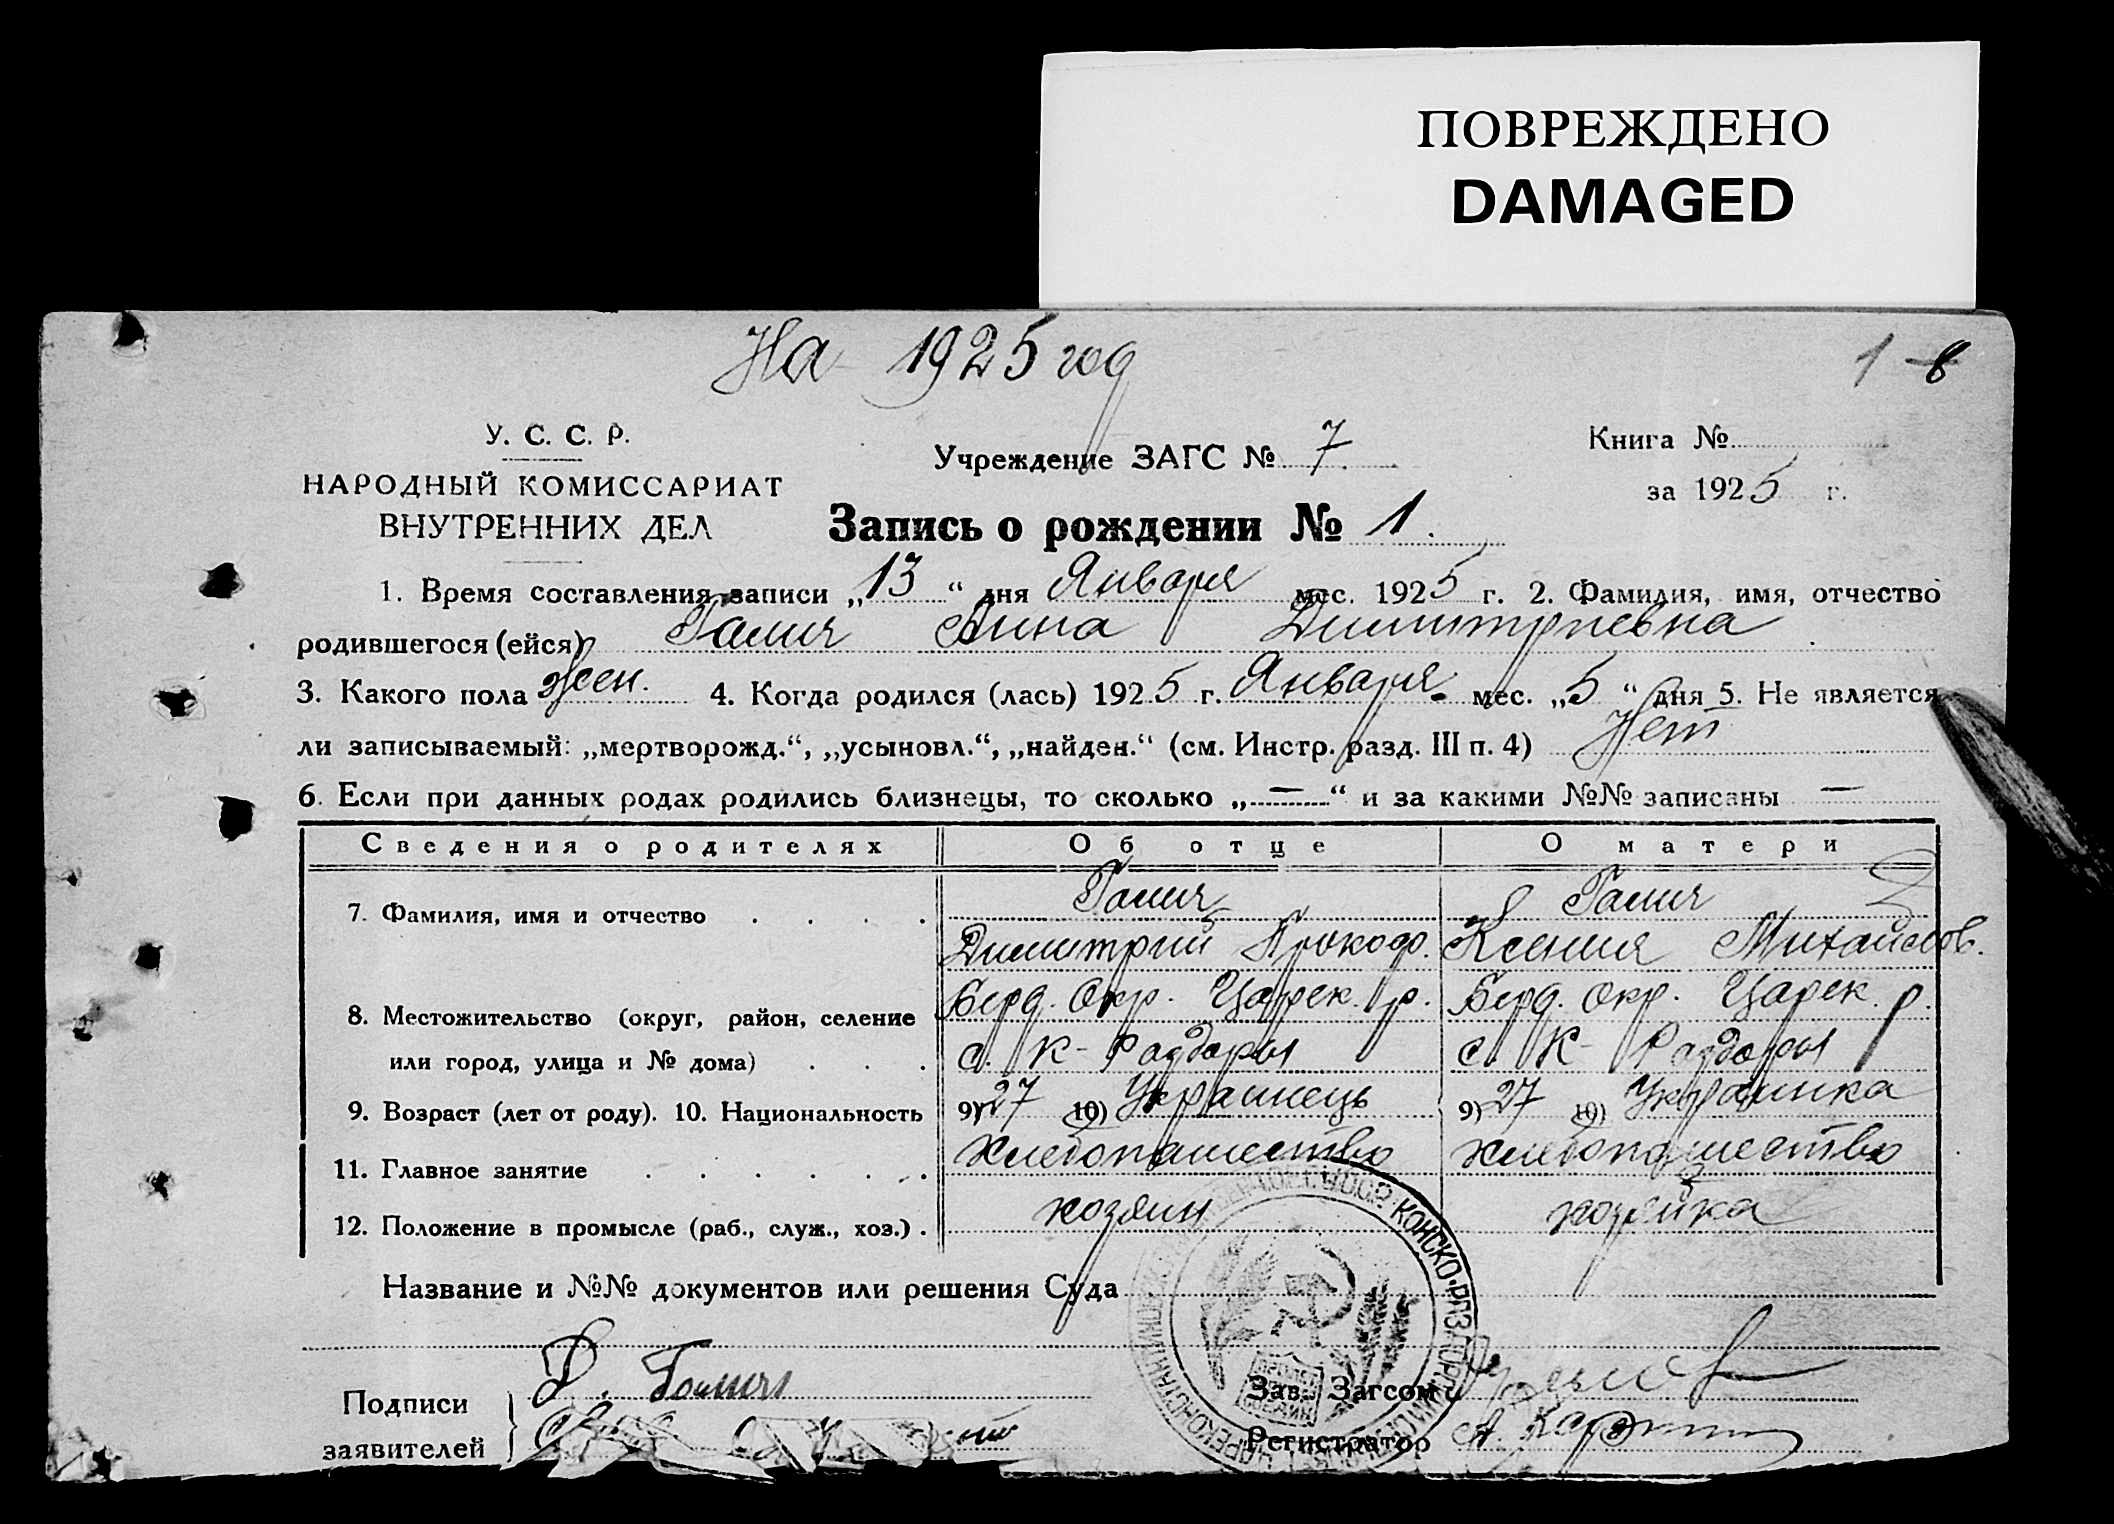 ПОВРЕЖДЕНО
DAMAGED
На 1925 год
1
8
У. С. С. Р.
НАРОДНЫЙ КОМИССАРИАТ
ВНУТРЕННИХ ДЕЛ
Учреждение ЗАГС № 7.
Книга №
за 1925 г.
Запись о рождении № 1.
1. Время составления записи „13“ дня Января мес. 1925 г. 2. Фамилия, имя, отчество
родившегося (ейся) Галич Анна Димитриевна
3. Какого пола жен. 4. Когда родился (лась) 1925 г. Января мес. „5“ дня 5. Не является
ли записываемый: „мертворожд.“, „усыновл.“, „найден.“ (см. Инстр. разд. III п. 4) Нет
6. Если при данных родах родились близнецы, то сколько „—“ и за какими №№ записаны —
Сведения о родителях Об отце О матери
7. Фамилия, имя и отчество Галич Галич
Димитрий Прокоф. Ксения Михайлов.
8. Местожительство (округ, район, селение Берд. Окр. Царек. р. Берд. Окр. Царек. р.
или город, улица и № дома) с. К-Раздоры с. К-Раздоры
9. Возраст (лет от роду). 10. Национальность 9) 27 10) Украинець 9) 27 10) Украинка
11. Главное занятие Хлебопашество Хлебопашество
12. Положение в промысле (раб., служ., хоз.) хозяин хозяйка
Название и №№ документов или решения Суда
КОНСКО-РАЗ
Подписи
заявителей
Д. Галич
Зав. Загсом
Регистратор